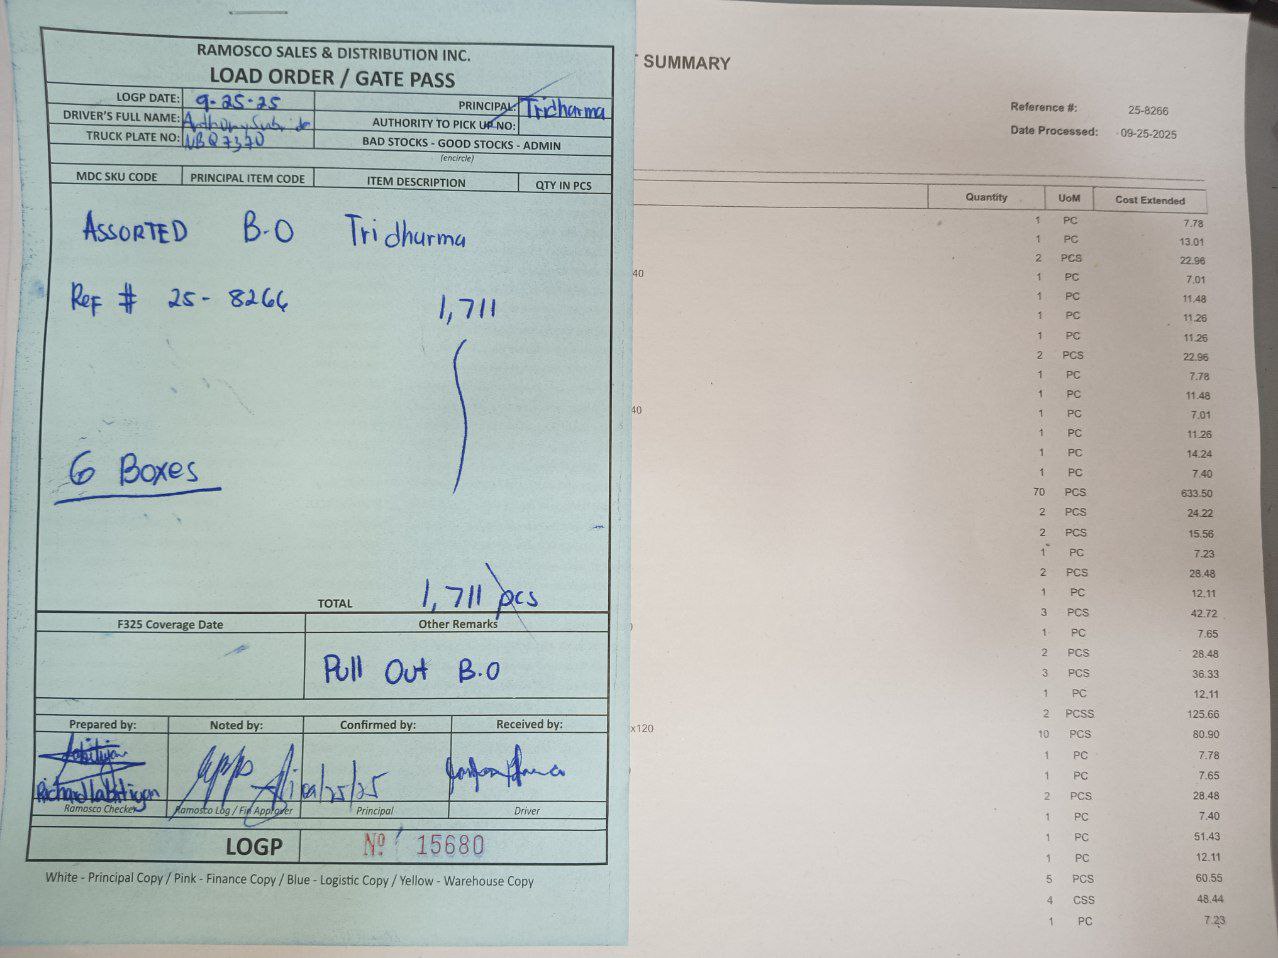 RAMOSCO SALES & DISTRIBUTION INC.
LOAD ORDER / GATE PASS
LOGP DATE: 9-25-25
PRINCIPAL: Tridharma
DRIVER'S FULL NAME: Anthony
AUTHORITY TO PICK UP NO:
TRUCK PLATE NO: NBQ7370
BAD STOCKS - GOOD STOCKS - ADMIN
(encircle)
MDC SKU CODE PRINCIPAL ITEM CODE ITEM DESCRIPTION QTY IN PCS
ASSORTED B.O Tridharma
Ref # 25-8266 1,711
6 Boxes
TOTAL 1,711 pcs
F325 Coverage Date Other Remarks
Pull Out B.O
Prepared by: Noted by: Confirmed by: Received by:
Richard Labitigan 09/25/25
Ramosco Checker Ramosco Log / Fin Approver Principal Driver
LOGP Nº 15680
White - Principal Copy / Pink - Finance Copy / Blue - Logistic Copy / Yellow - Warehouse Copy
SUMMARY
Reference #: 25-8266
Date Processed: 09-25-2025
Quantity UoM Cost Extended
1 PC 7.78
1 PC 13.01
40 2 PCS 22.96
1 PC 7.01
1 PC 11.48
1 PC 11.26
1 PC 11.26
2 PCS 22.96
1 PC 7.78
1 PC 11.48
40 1 PC 7.01
1 PC 11.26
1 PC 14.24
1 PC 7.40
70 PCS 633.50
2 PCS 24.22
2 PCS 15.56
1 PC 7.23
2 PCS 28.48
1 PC 12.11
3 PCS 42.72
1 PC 7.65
2 PCS 28.48
3 PCS 36.33
1 PC 12.11
2 PCSS 125.66
x120 10 PCS 80.90
1 PC 7.78
1 PC 7.65
2 PCS 28.48
1 PC 7.40
1 PC 51.43
1 PC 12.11
5 PCS 60.55
4 CSS 48.44
1 PC 7.23